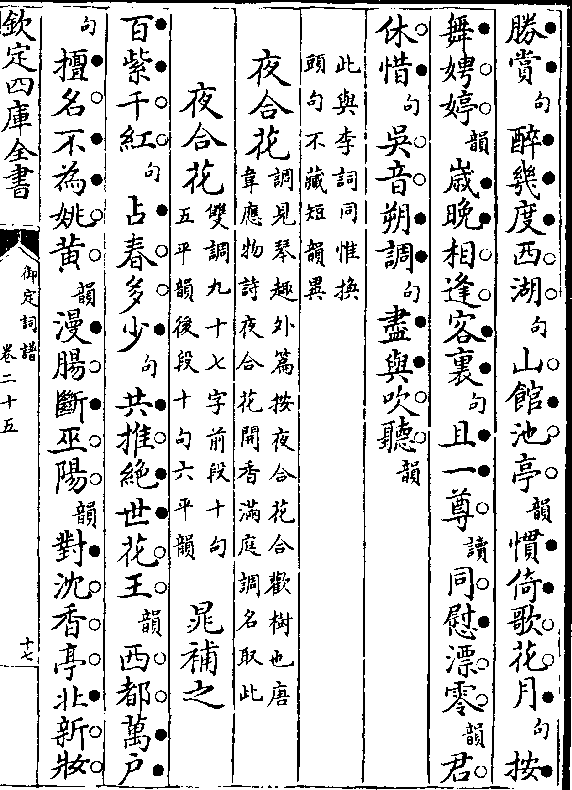 勝賞句醉幾度西湖句山館池亭韻慣倚歌花月句按
舞娉婷韻歲晚相逢客裏句且一尊讀同慰漂零韻君
休惜句吳音朔調句盡與吹聽韻
此與李詞同惟換
頭句不藏短韻異
夜合花調見琴趣外篇按夜合花合歡樹也唐
韋應物詩夜合花開香滿庭調名取此
夜合花雙調九十七字前段十句
五平韻後段十句六平韻
晁補之
百紫千紅句占春多少句共推絕世花王韻西都萬戶
句擅名不為姚黃韻漫腸斷巫陽韻對沈香亭北新妝
欽定四庫全書
御定詞譜
卷二十五
十七